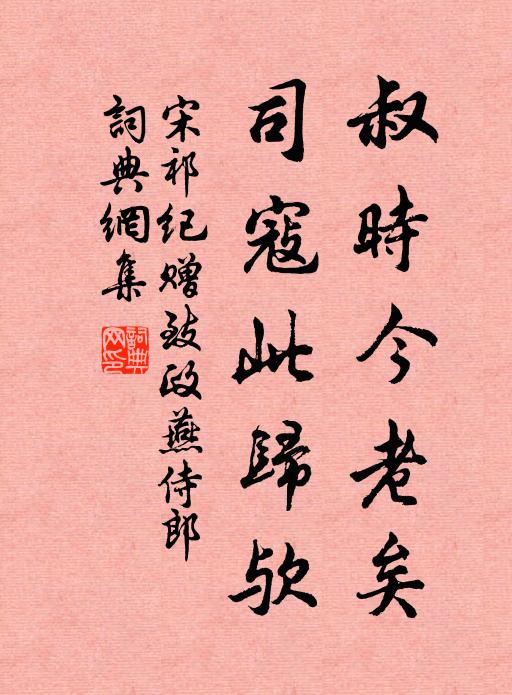 叔時今老矣
司寇此歸欤
宋祁紀赠致政燕侍郎
詞典網集
詞典網印